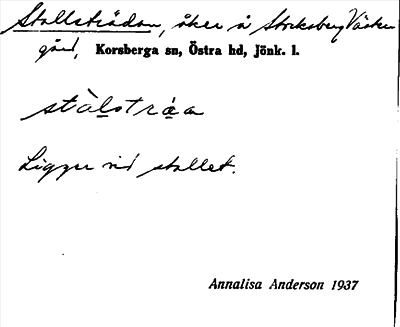 Stallsträdan, åker å Stocksberg Väster
gård, Korsberga sn, Östra hd, Jönk. l.
stàlstráa
Ligger vid stallet.
Annalisa Anderson 1937